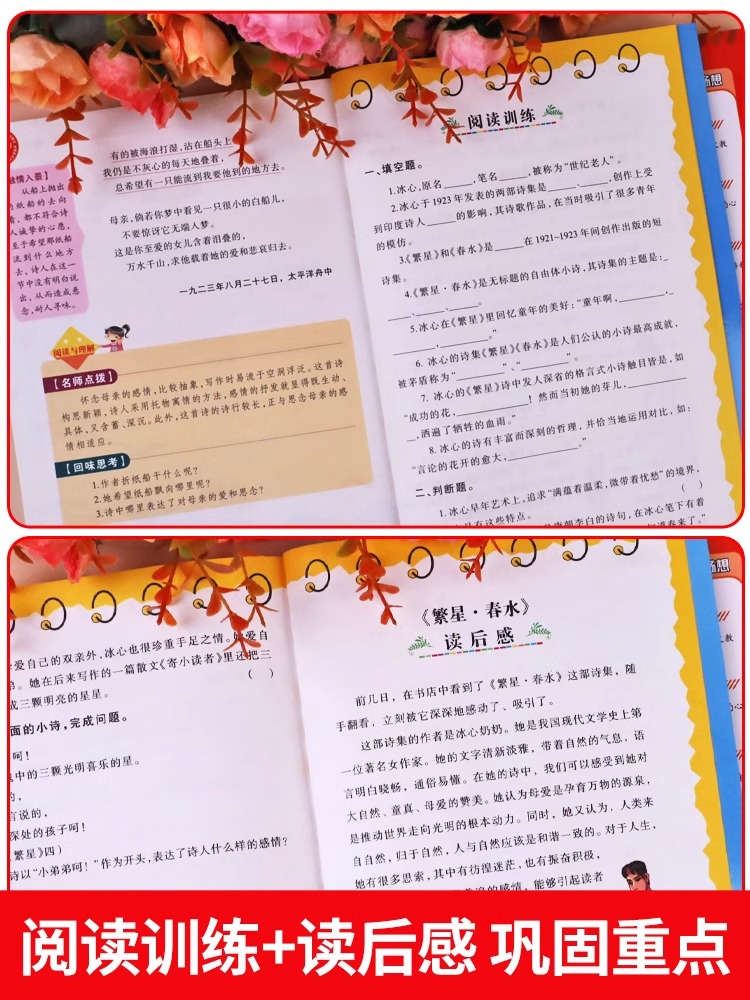 有的被海浪打湿,沾在船头上
我仍是不灰心的每天地叠着,
总希望有一只能流到我要他到的地方去。
母亲,倘若你梦中看见一只很小的白船儿,
不要惊讶它无端入梦。
这是你至爱的女儿含着泪叠的,
万水千山,求他载着她的爱和悲哀归去。
一九二三年八月二十七日,太平洋舟中
情入景】
从船上抛出
的纸船的去向
看,都不符合诗
人诚挚的心愿,
至于希望那纸船
流到什么地方
去,诗人在这一
节中没有明白说
出,从而造成悬
念,耐人寻味。
阅读与理解
【名师点拨】
怀念母亲的感情,比较抽象,写作时易流于空洞浮泛。这首诗
构思新颖,诗人采用托物寓情的方法,感情的抒发就显得既生动、
具体,又含蓄、深沉。此外,这首诗的诗行较长,正与思念母亲的感
情相适应。
【回味思考】
1.作者折纸船干什么呢?
2.她希望纸船飘向哪里呢?
3.诗中哪里表达了对母亲的爱和思念?
阅读训练
一、填空题。
1.冰心,原名______,笔名______,被称为“世纪老人”。
2.冰心于1923年发表的两部诗集是______、______,创作上受
到印度诗人______的影响,其诗歌作品,在当时吸引了很多青年
的模仿。
3.《繁星》和《春水》是______在1921~1923年间创作出版的短
诗集。
4.《繁星·春水》是无标题的自由体小诗,其诗集的主题是:_
______、______、______。
5.冰心在《繁星》里回忆童年的美好:“童年啊,______,
______,______。”
6.冰心的诗集《繁星》《春水》是人们公认的小诗最高成就,
被茅盾称为“______”、“______”。
7.冰心的《繁星》诗中发人深省的格言式小诗触目皆是,如
“成功的花,______!然而当初她的芽儿,______
_,洒遍了牺牲的血雨。”
8.冰心的诗有丰富而深刻的哲理,并恰当地运用对比,如:
“言论的花开的愈大,______。”
二、判断题。
1.冰心早年艺术上,追求“满蕴着温柔,微带着忧愁”的境界,
( )
李白的诗句,在冰心笔下有着
知道春来了。”
畅想
爱自己的双亲外,冰心也很珍重手足之情。她爱自
弟。她在后来写作的一篇散文《寄小读者》里还把三
成三颗明亮的星星。
( )
面的小诗,完成问题。
呵!
中的三颗光明喜乐的星。
的,
言说的,
深处的孩子呵!
繁星》四)
诗以“小弟弟呵!”作为开头,表达了诗人什么样的感情?
《繁星·春水》
读后感
前几日,在书店中看到了《繁星·春水》这部诗集,随
手翻看,立刻被它深深地感动了、吸引了。
这部诗集的作者是冰心奶奶。她是我国现代文学史上第
一位著名女作家。她的文字清新淡雅,带着自然的气息,语
言明白晓畅,通俗易懂。在她的诗中,我们可以感受到她对
大自然、童真、母爱的赞美。她认为母爱是孕育万物的源泉,
是推动世界走向光明的根本动力。同时,她又认为,人类来
自自然,归于自然,人与自然应该是和谐一致的。对于人生,
她有很多思索,其中有彷徨迷茫,也有振奋积极,
的感情,能够引起读者
畅想
阅读训练+读后感 巩固重点